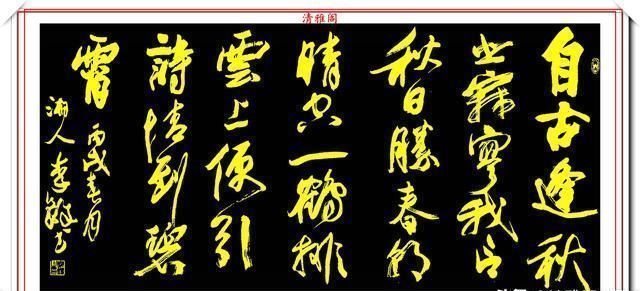 清雅阁
自古逢秋
悲寂寥我言
秋日勝春朝
晴空一鶴排
雲上便引
詩情到碧
霄
丙戌春月
李